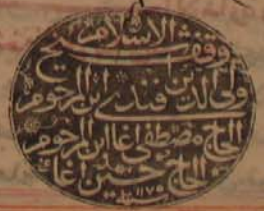 وقف شيخ الاسلام
ولي الدين افندي ابن المرحوم
الحاج مصطفى اغا ابن المرحوم
الحاج حسين اغا
سنة ١١٧٥